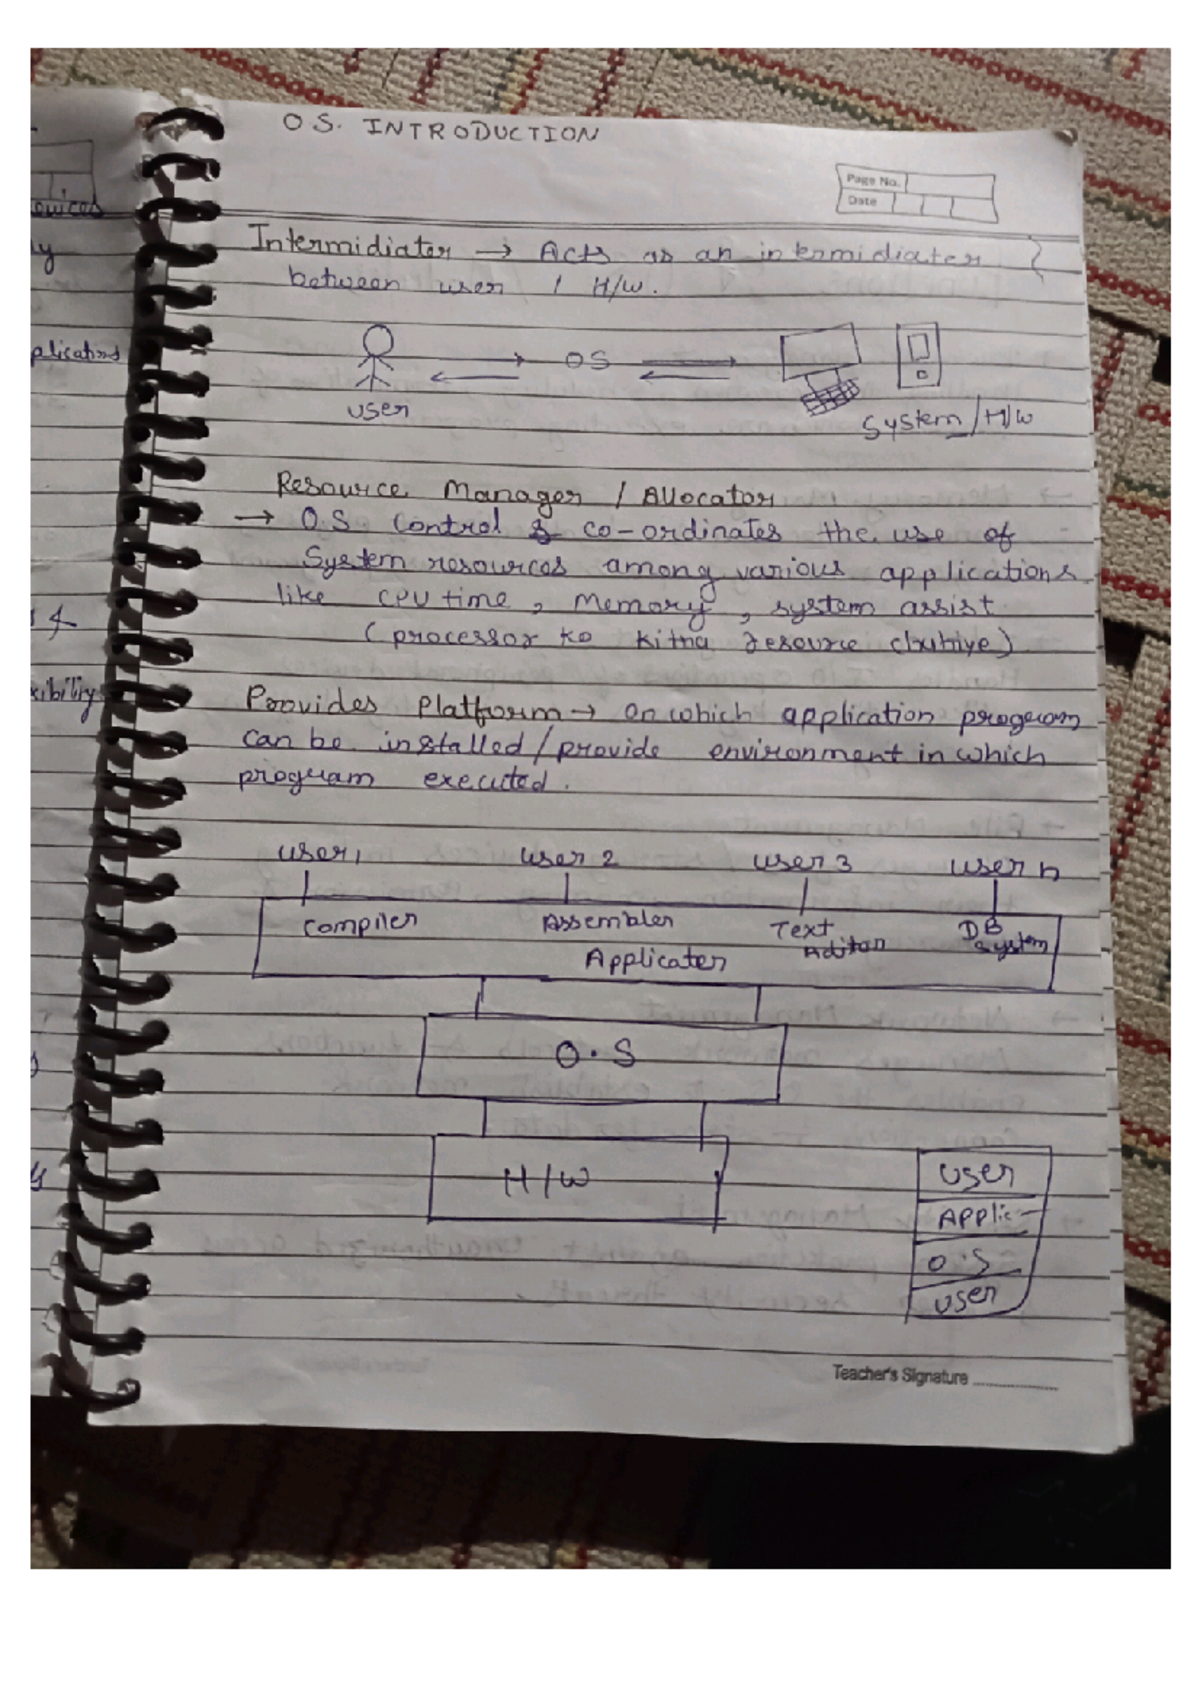 O S. INTRODUCTION
Page No.
Date
Intermidiator → Acts as an intermidiater
between user / H/W.
OS
user
System/H/W
Resource Manager / Allocator
→ O.S Control & co-ordinates the use of
System resources among various applications
like CPU time, Memory, system assist
(processor ko kitna resource chahiye)
Provides Platform → On which application program
can be installed/provide environment in which
program executed.
user 1 user 2 user 3 user n
Compiler Assembler Text Aditor DB System
Applicater
O.S
H/W
User
Applic-
O.S
User
Teacher's Signature
plications
xibility